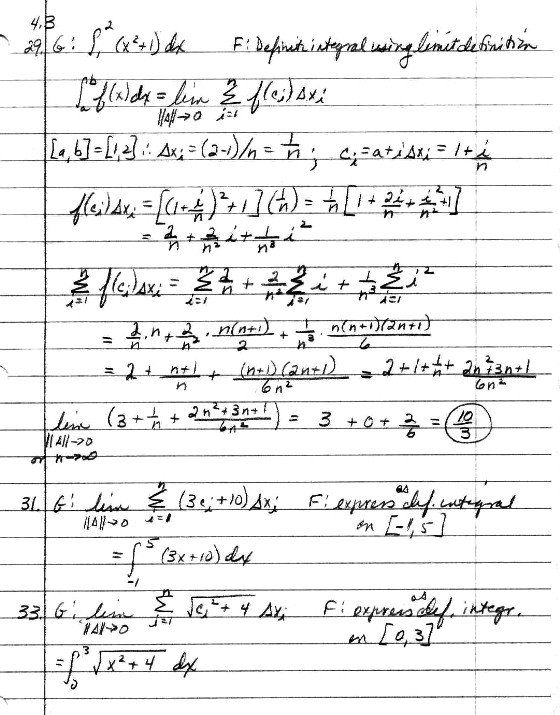 4.3
29. G: ∫₁² (x²+1) dx F: Definite integral using limit definition
∫ₐᵇ f(x)dx = lim ‖Δ‖→0 Σ i=1 n f(cᵢ) Δxᵢ
[a,b] = [1,2] ∴ Δxᵢ = (2-1)/n = 1/n ; cᵢ = a+iΔxᵢ = 1+ i/n
f(cᵢ)Δxᵢ = [(1+ i/n)² + 1] (1/n) = 1/n [1 + 2i/n + i²/n² +1]
= 2/n + 2/n² i + 1/n³ i²
Σ i=1 n f(cᵢ)Δxᵢ = Σ i=1 n 2/n + 2/n² Σ i=1 n i + 1/n³ Σ i=1 n i²
= 2/n · n + 2/n² · n(n+1)/2 + 1/n³ · n(n+1)(2n+1)/6
= 2 + n+1/n + (n+1)(2n+1)/6n² = 2+1+1/n + 2n²+3n+1/6n²
lim ‖Δ‖→0 or n→∞ (3 + 1/n + 2n²+3n+1/6n²) = 3 + 0 + 2/6 = 10/3
31. G: lim ‖Δ‖→0 Σ i=1 n (3cᵢ+10) Δxᵢ F: express as def. integral
on [-1,5]
= ∫₋₁⁵ (3x+10) dx
33. G: lim ‖Δ‖→0 Σ i=1 n √(cᵢ²+4) Δxᵢ F: express as def. integr.
on [0,3]
= ∫₀³ √(x²+4) dx